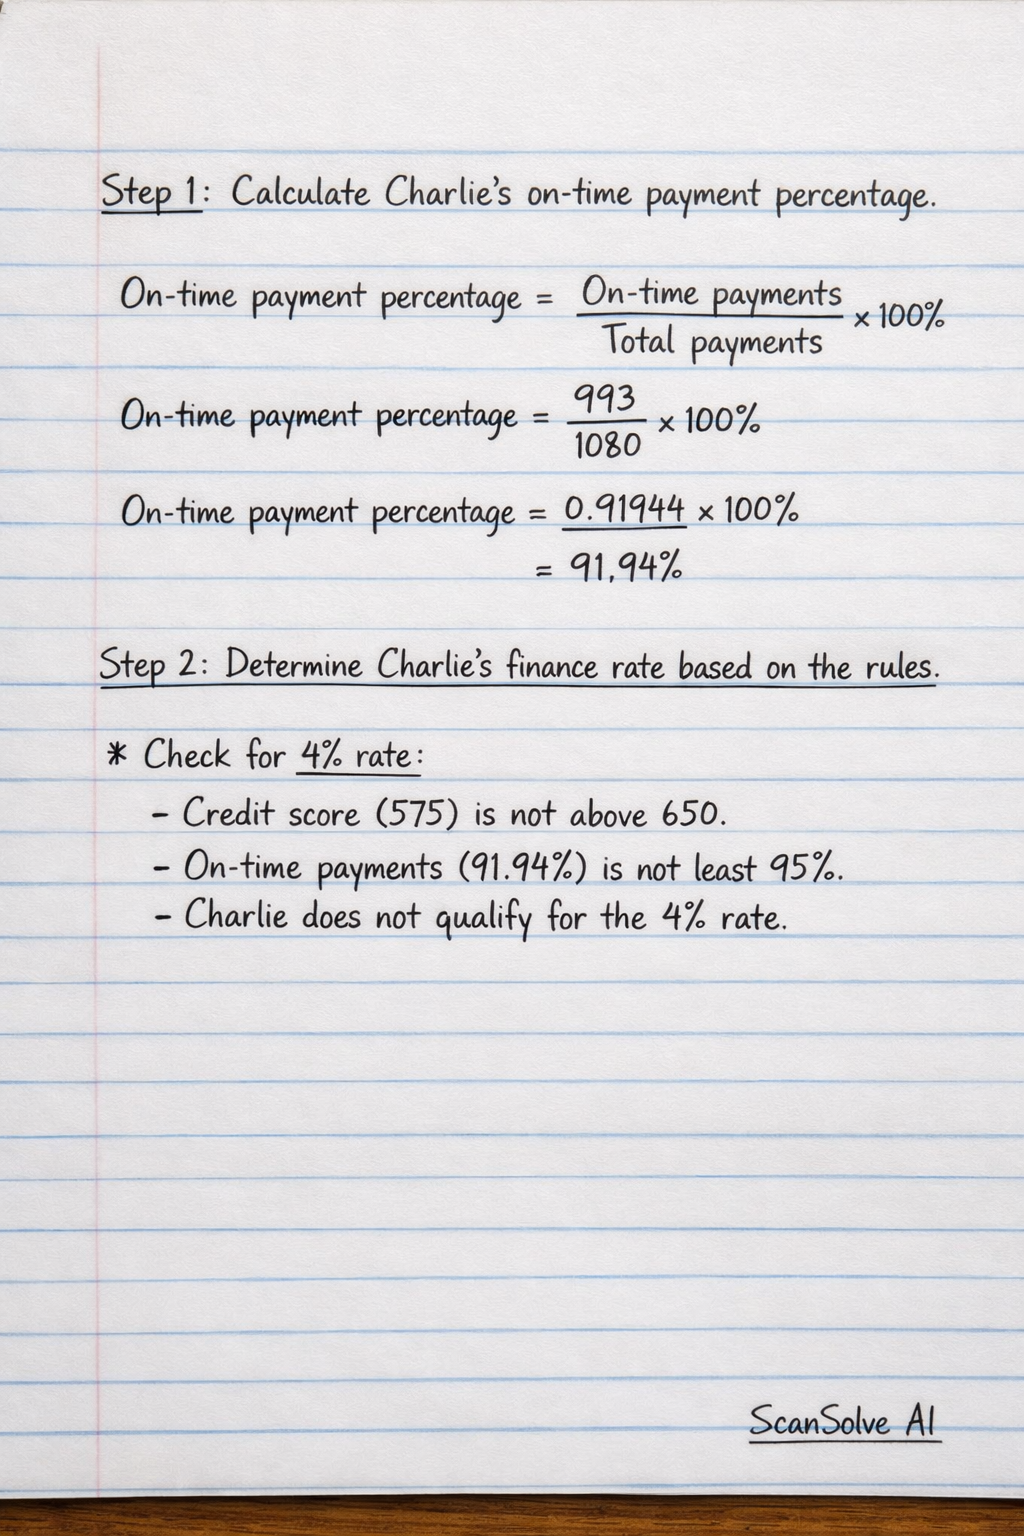 Step 1: Calculate Charlie's on-time payment percentage.
On-time payment percentage = On-time payments / Total payments × 100%
On-time payment percentage = 993 / 1080 × 100%
On-time payment percentage = 0.91944 × 100%
= 91,94%
Step 2: Determine Charlie's finance rate based on the rules.
* Check for 4% rate:
- Credit score (575) is not above 650.
- On-time payments (91.94%) is not least 95%.
- Charlie does not qualify for the 4% rate.
ScanSolve AI